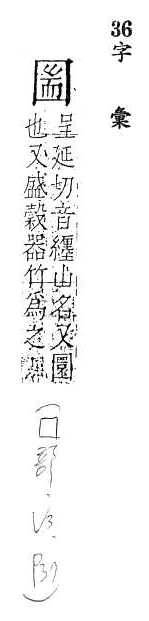 36字 彙
圌
呈延切音纏山名又圜
也又盛穀器竹爲之
(囗部